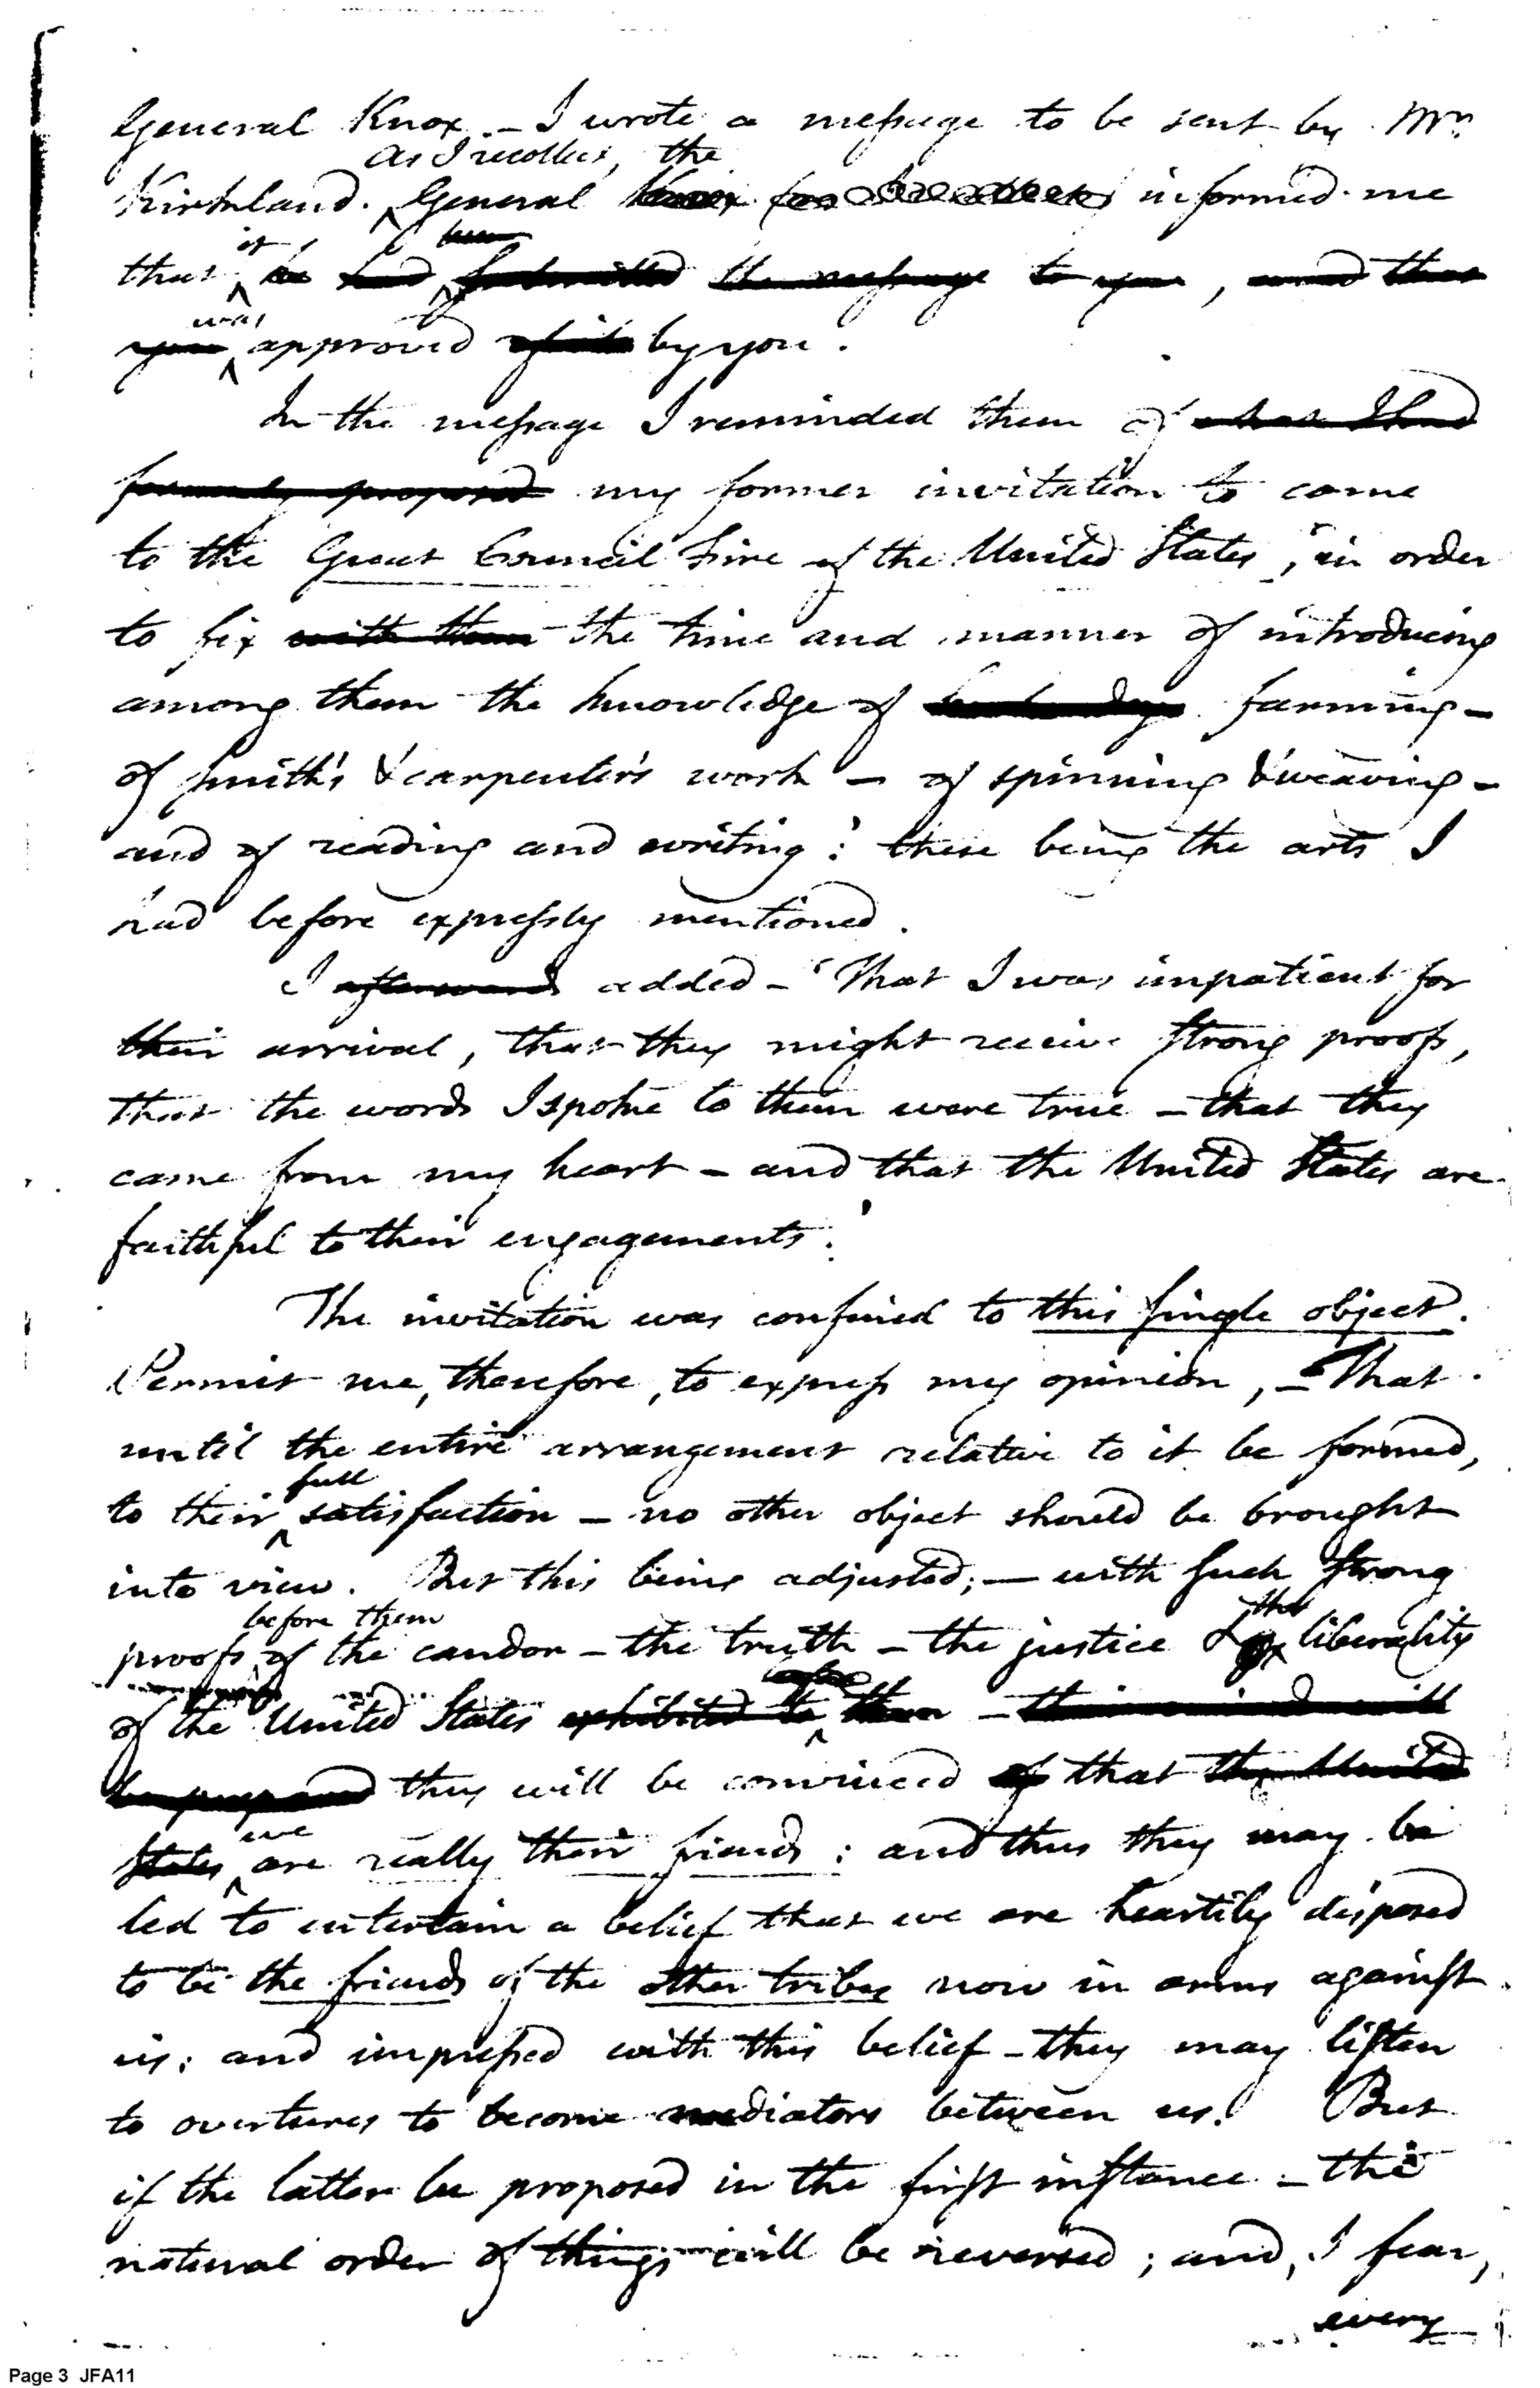 General Knox. – I wrote a message to be sent by Mr.
As I recollect, the
Kirkland. General Knox informed me
it been
that he had submitted the message to you, and that
was
you approved of it by you.
In the message I reminded them of what I had
formerly proposed my former invitation to come
to the Great Council Fire of the United States, 'in order
to fix with them the time and manner of introducing
among them the knowledge of husbandry farming –
of smith's & carpenter's work – of spinning & weaving –
and of reading and writing:' these being the arts I
had before expressly mentioned.
I afterwards added – 'That I was impatient for
their arrival, that they might receive strong proofs,
that the words I spoke to them were true – that they
came from my heart – and that the United States are
faithful to their engagements.'
The invitation was confined to this single object.
Permit me, therefore, to express my opinion, – That
until the entire arrangement relative to it be formed,
full
to their satisfaction – no other object should be brought
into view. But this being adjusted; – with such strong
before them the
proofs of the candor – the truth – the justice & liberality
of the United States exhibited to them – their minds will
be prepared they will be convinced of that the United
we
States are really their friends: and thus they may be
led to entertain a belief that we are heartily disposed
to be the friends of the other tribes now in arms against
us: and impressed with this belief – they may listen
to overtures to become mediators between us. But
if the latter be proposed in the first instance – the
natural order of things will be reversed; and, I fear,
every
Page 3 JFA11